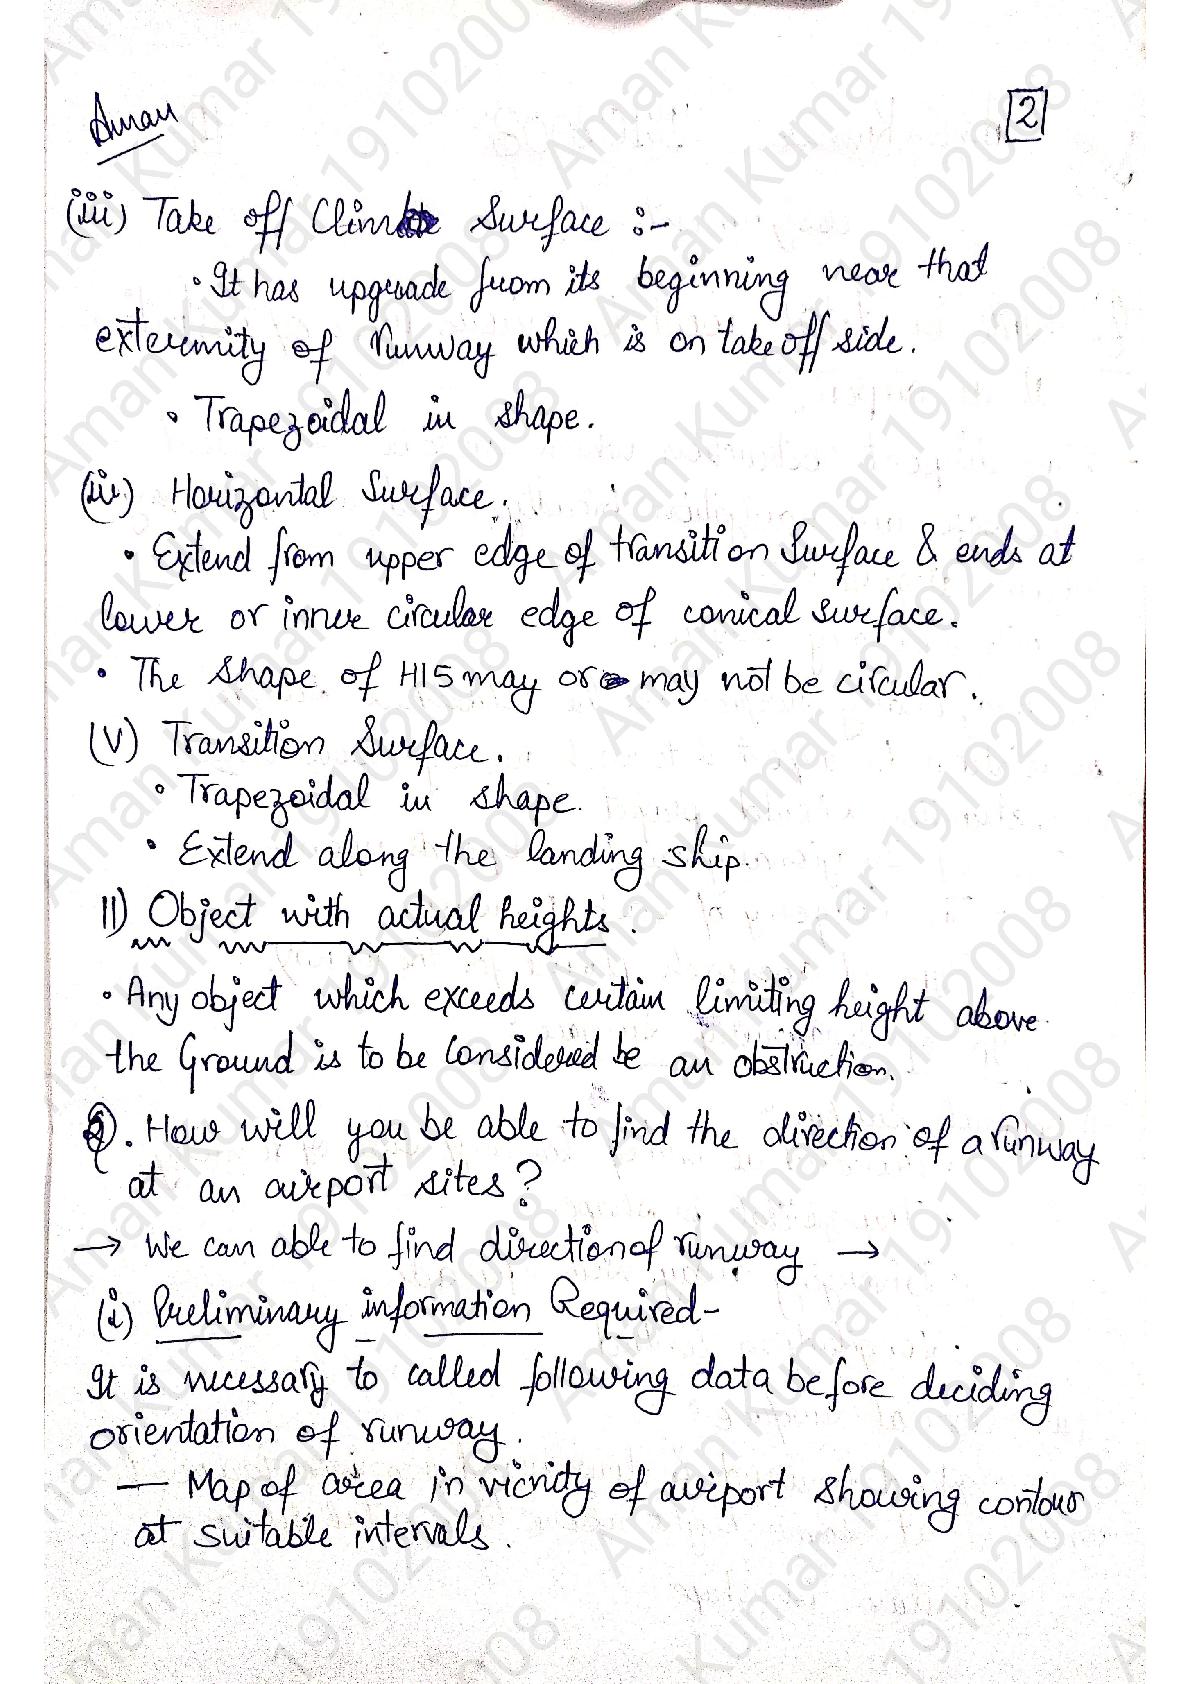 Aman
2
(iii) Take off Climb Surface :-
• It has upgrade from its beginning near that
exteremity of runway which is on take off side.
• Trapezoidal in shape.
(iv) Horizontal Surface.
• Extend from upper edge of transition Surface & ends at
lower or inner circular edge of conical surface.
• The shape of H15 may or may not be circular.
(V) Transition Surface.
• Trapezoidal in shape.
• Extend along the landing ship.
II) Object with actual heights.
• Any object which exceeds certain limiting height above
the Ground is to be considered be an obstruction.
Q. How will you be able to find the direction of a runway
at an airport sites?
→ We can able to find direction of runway →
(i) Preliminary information Required-
It is necessary to called following data before deciding
orientation of runway.
— Map of area in vicnity of airport showing contour
at suitable intervals.
Aman Kumar 19102008